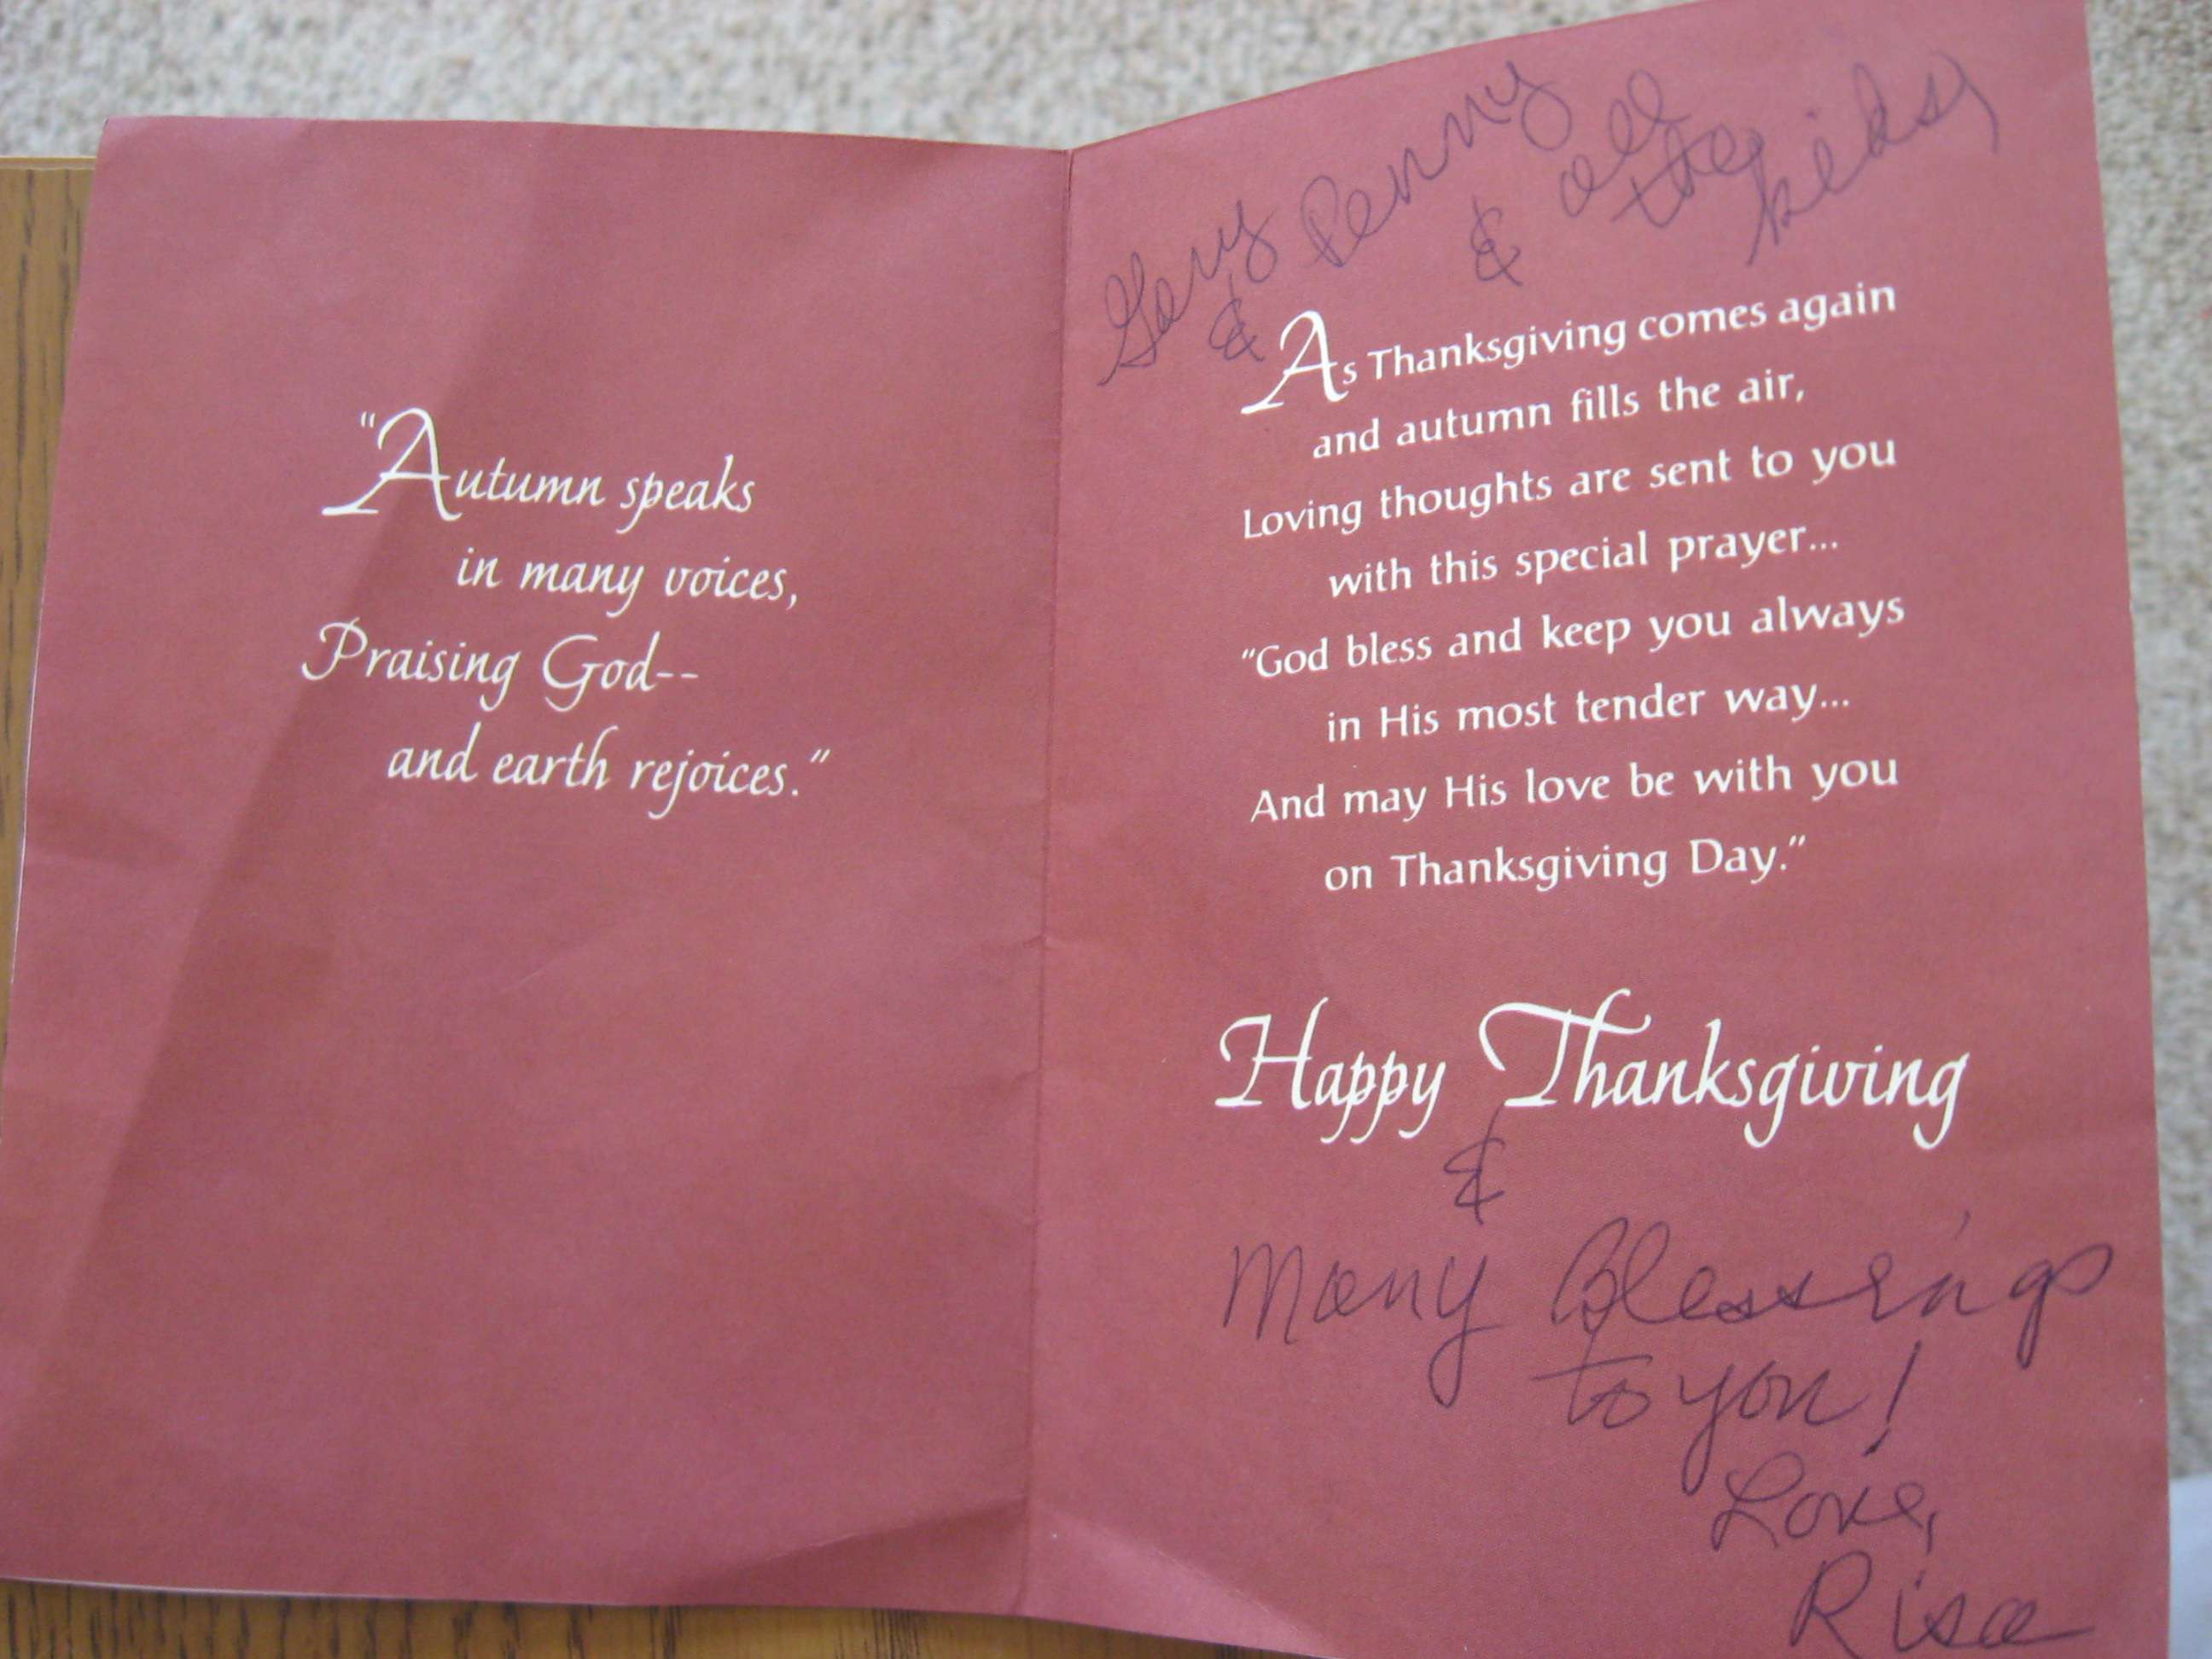 "Autumn speaks
in many voices,
Praising God--
and earth rejoices."
Gary & Penny & all the kids,
As Thanksgiving comes again
and autumn fills the air,
Loving thoughts are sent to you
with this special prayer...
"God bless and keep you always
in His most tender way...
And may His love be with you
on Thanksgiving Day."
Happy Thanksgiving
&
Many Blessings
to you!
Love,
Risa